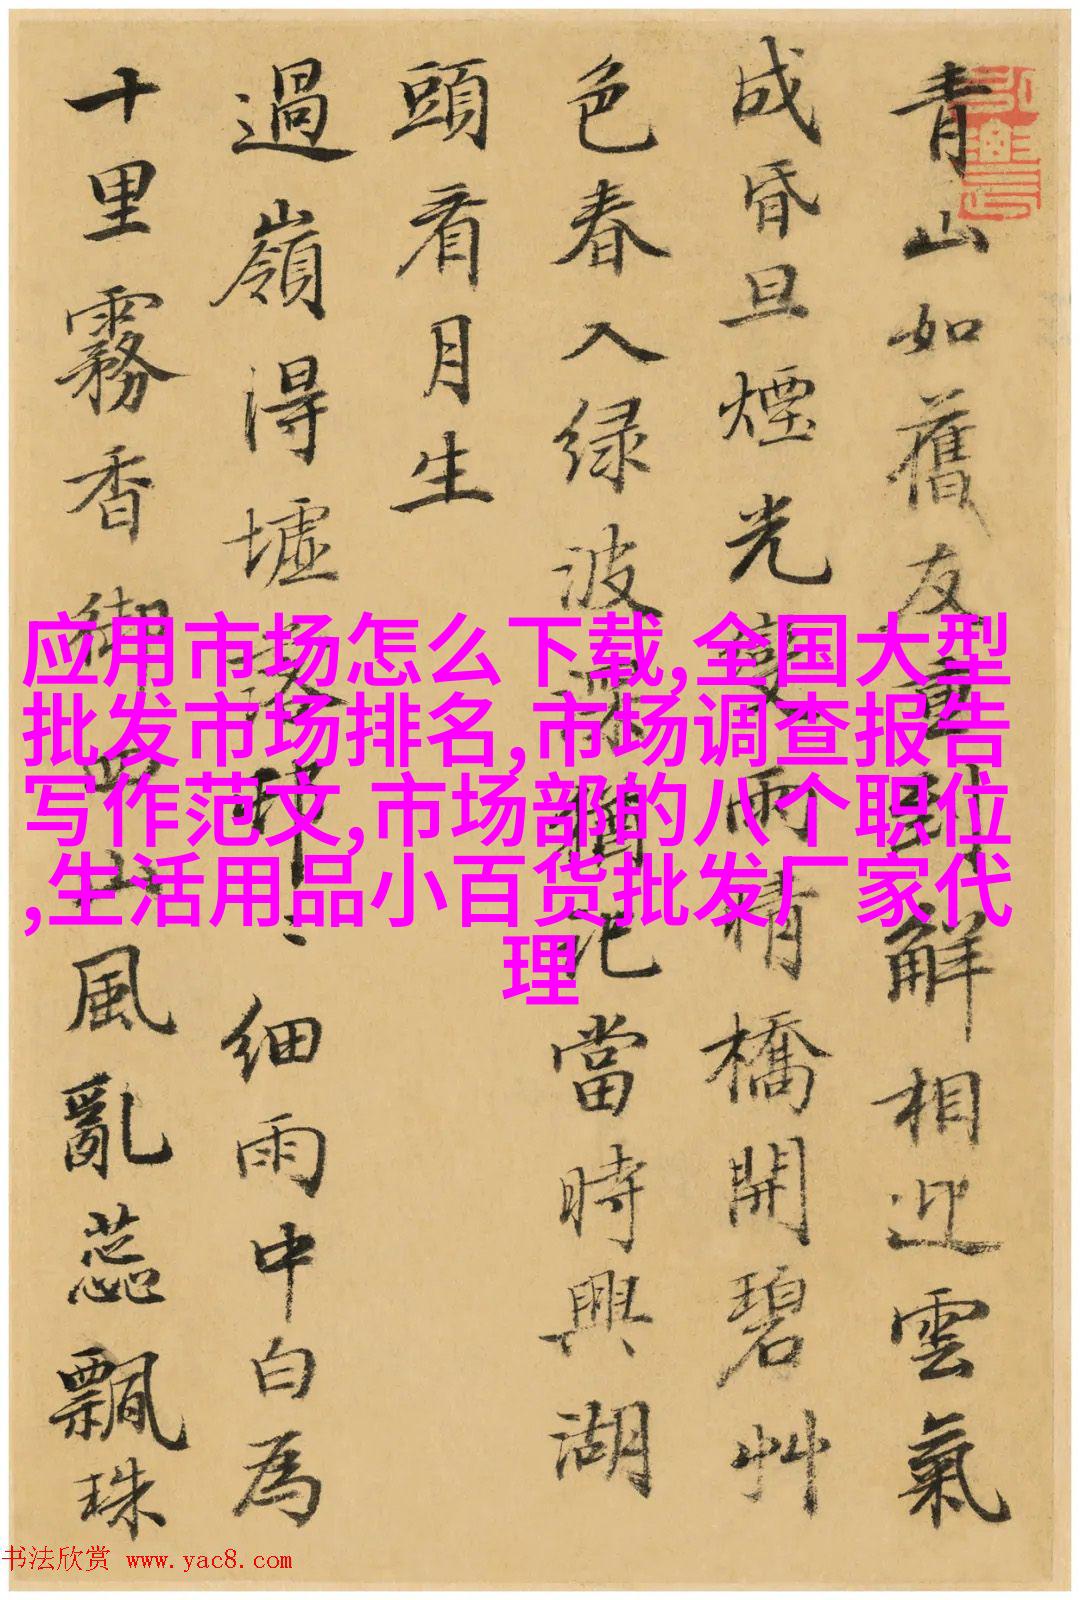 青山如舊友重到解相迎雲氣
成昏旦煙光變雨晴橋開碧艸
色春入绿波猶記當時興湖
頭看月生
過嶺得墟落細雨中白為
十里霧香山風亂蕊飄珠
应用市场怎么下载,全国大型
批发市场排名,市场调查报告
写作范文,市场部的八个职位
,生活用品小百货批发厂家代
理
书法欣赏 www.yac8.com